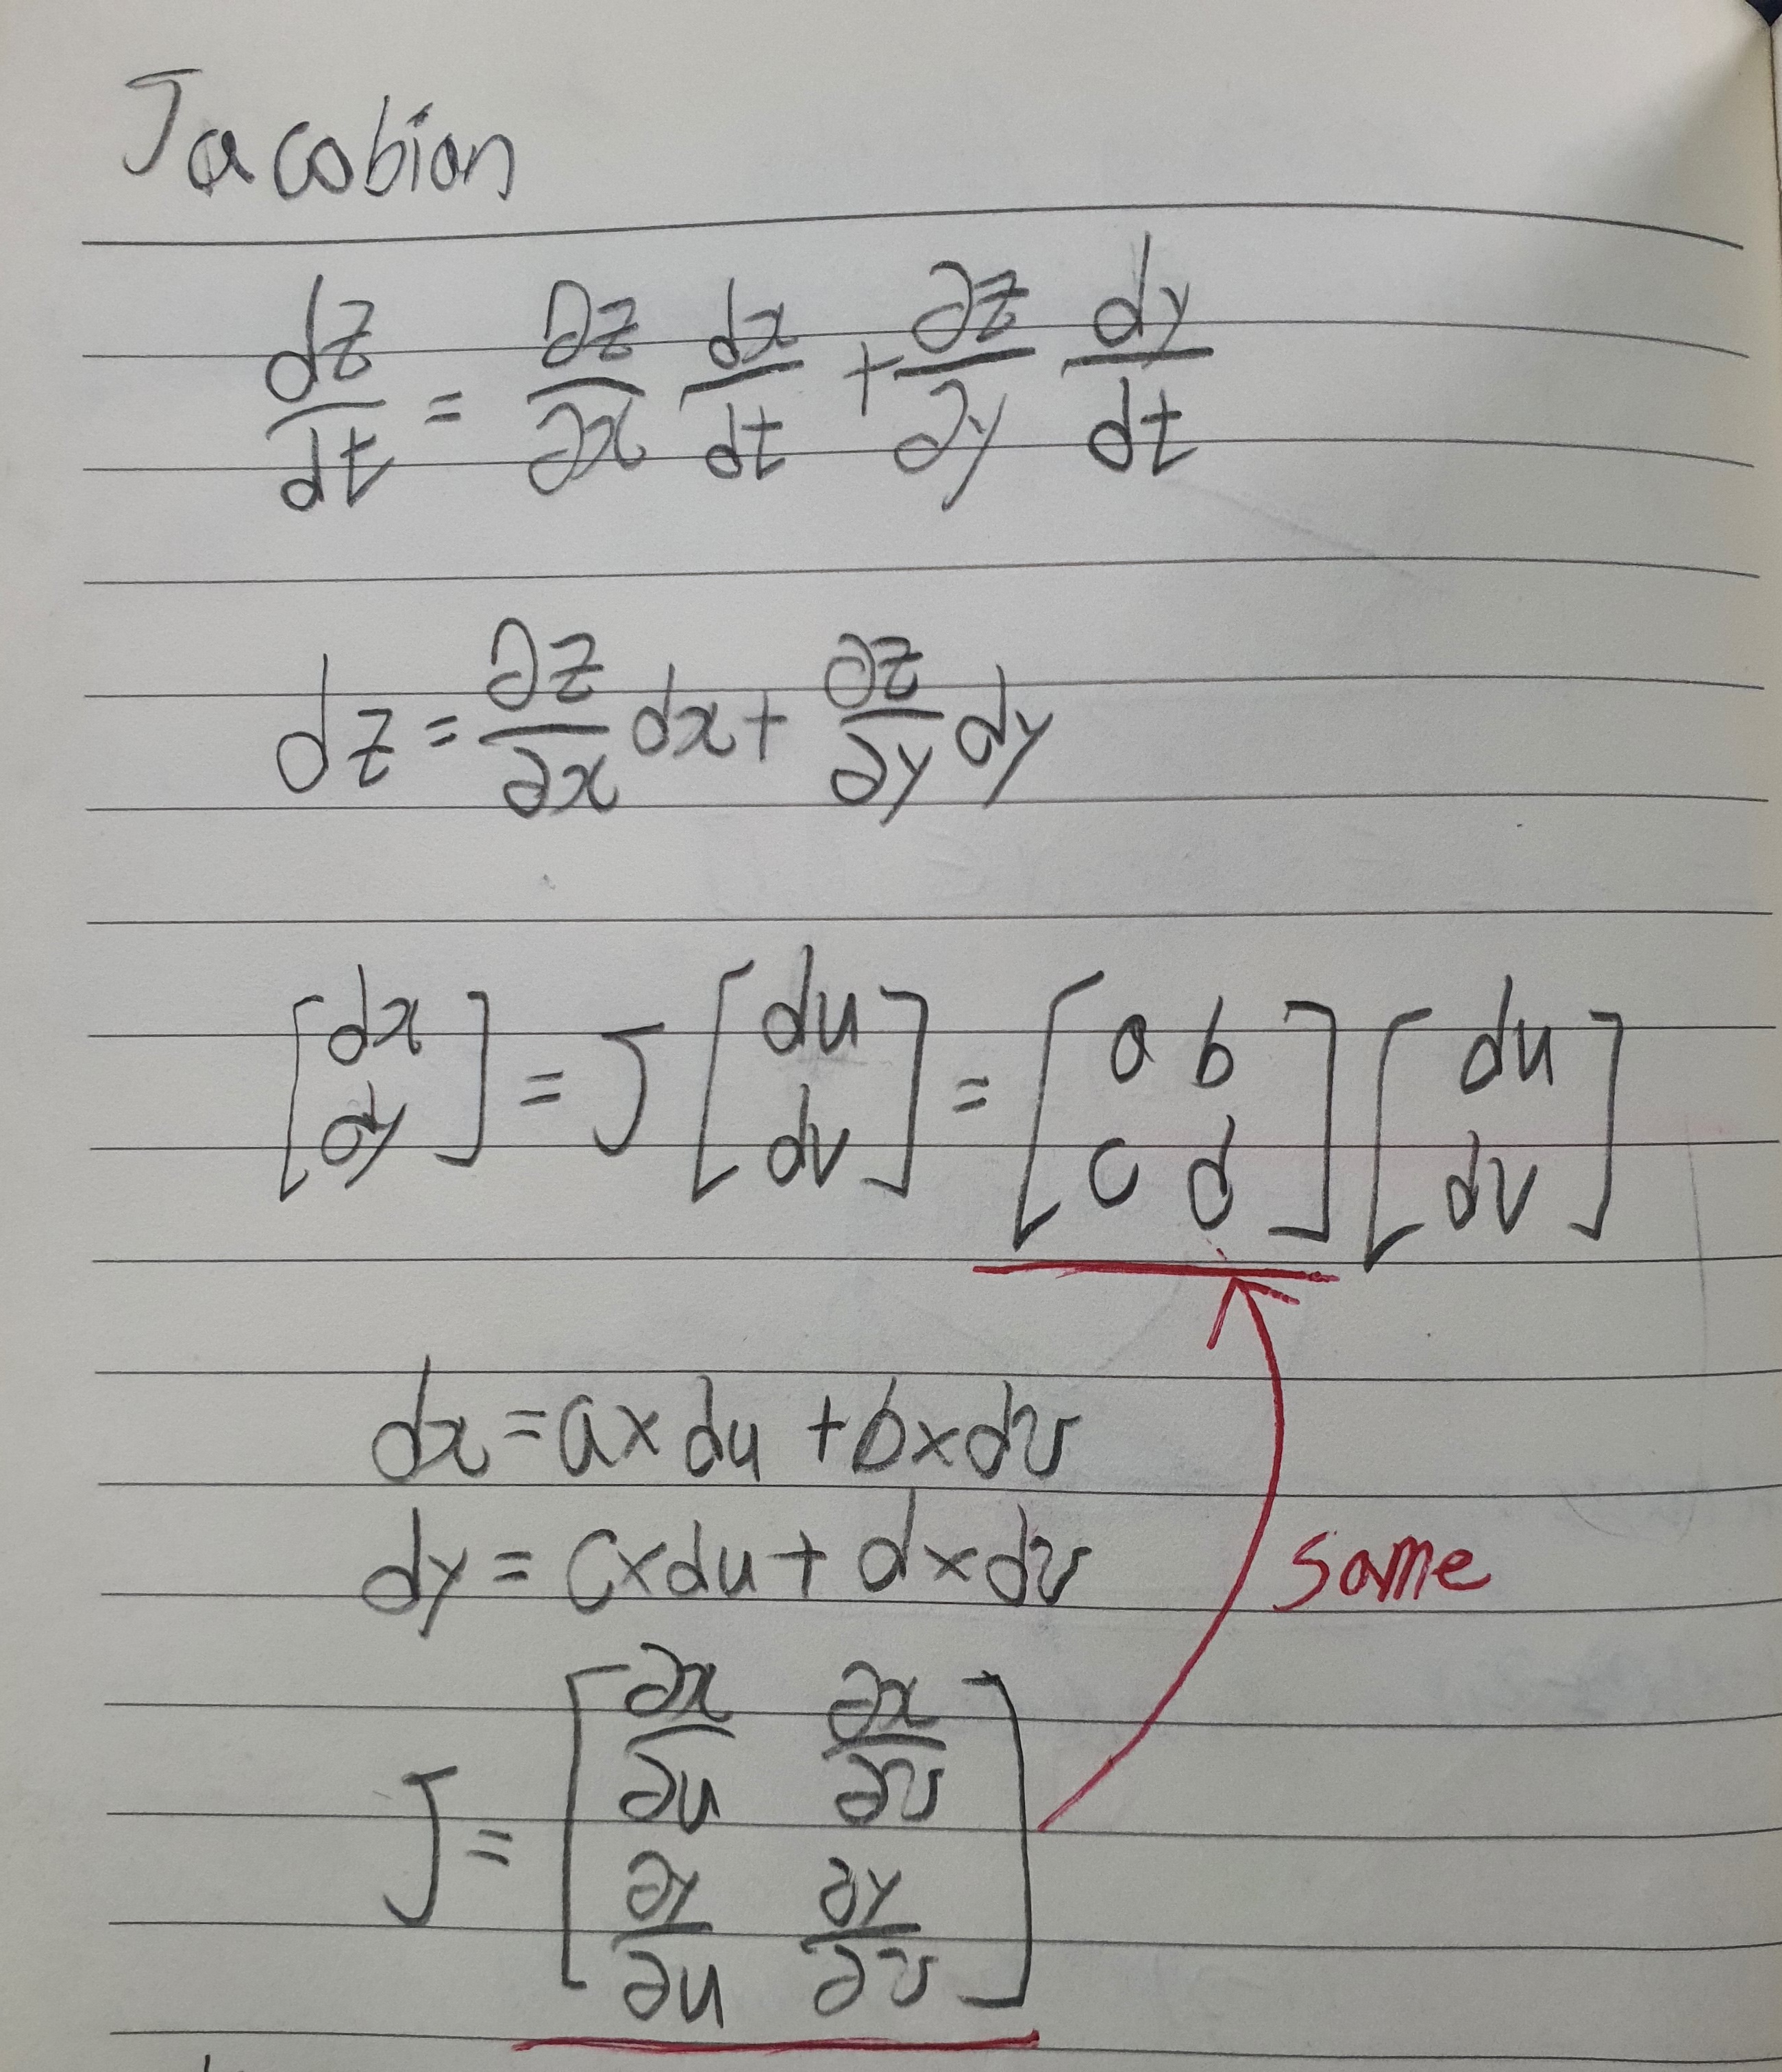 Jacobian
dz/dt = ∂z/∂x dx/dt + ∂z/∂y dy/dt
dz = ∂z/∂x dx + ∂z/∂y dy
[dx; dy] = J [du; dv] = [a b; c d] [du; dv]
dx = a × du + b × dv
dy = c × du + d × dv
same
J = [∂x/∂u ∂x/∂v; ∂y/∂u ∂y/∂v]